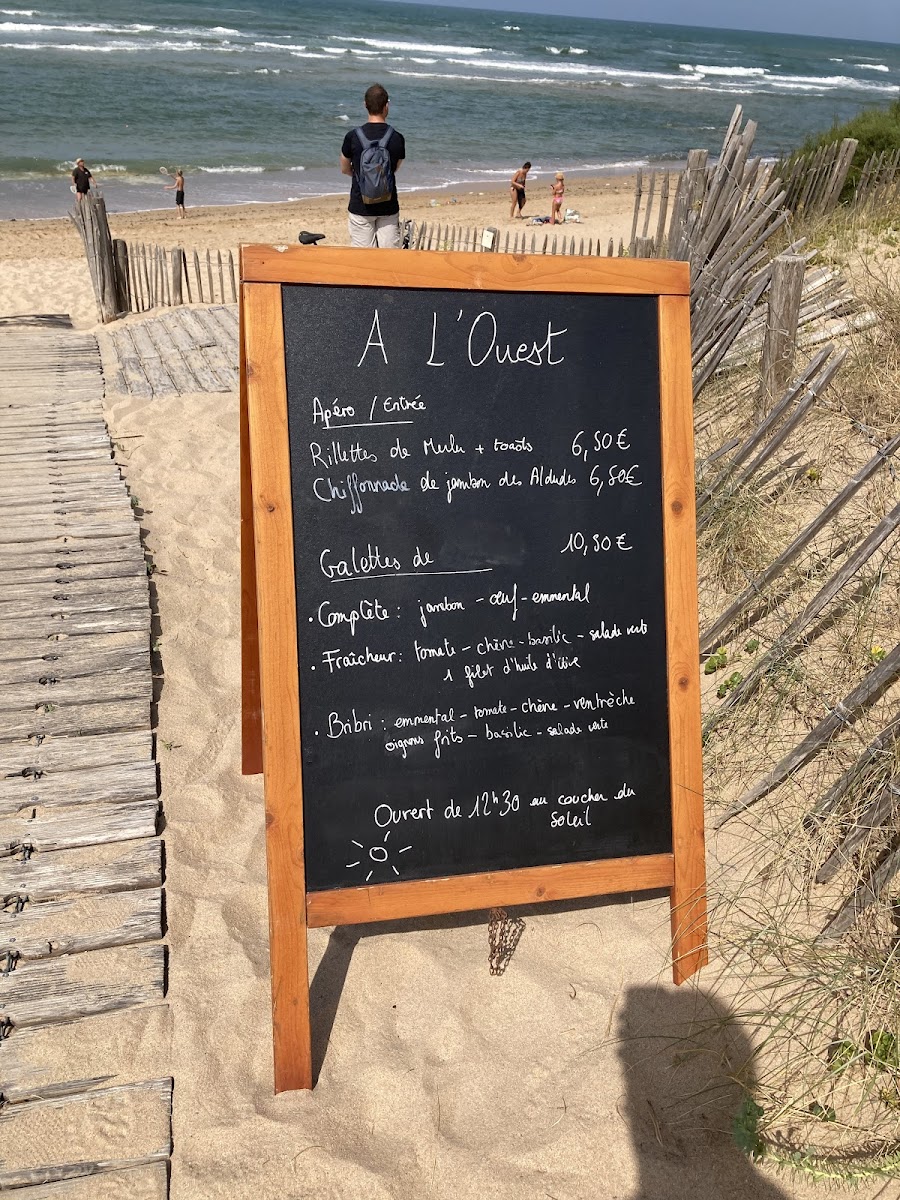 A L'Ouest
Apéro / Entrée
Rillettes de Merlu + toasts 6,50€
Chiffonnade de jambon des Aldudes 6,50€
Galettes de 10,50€
• Complète : jambon - œuf - emmental
• Fraîcheur : tomate - chèvre - basilic - salade verte
1 filet d'huile d'olive
• Bibri : emmental - tomate - chèvre - ventrèche
oignons frits - basilic - salade verte
Ouvert de 12h30 au coucher du
soleil